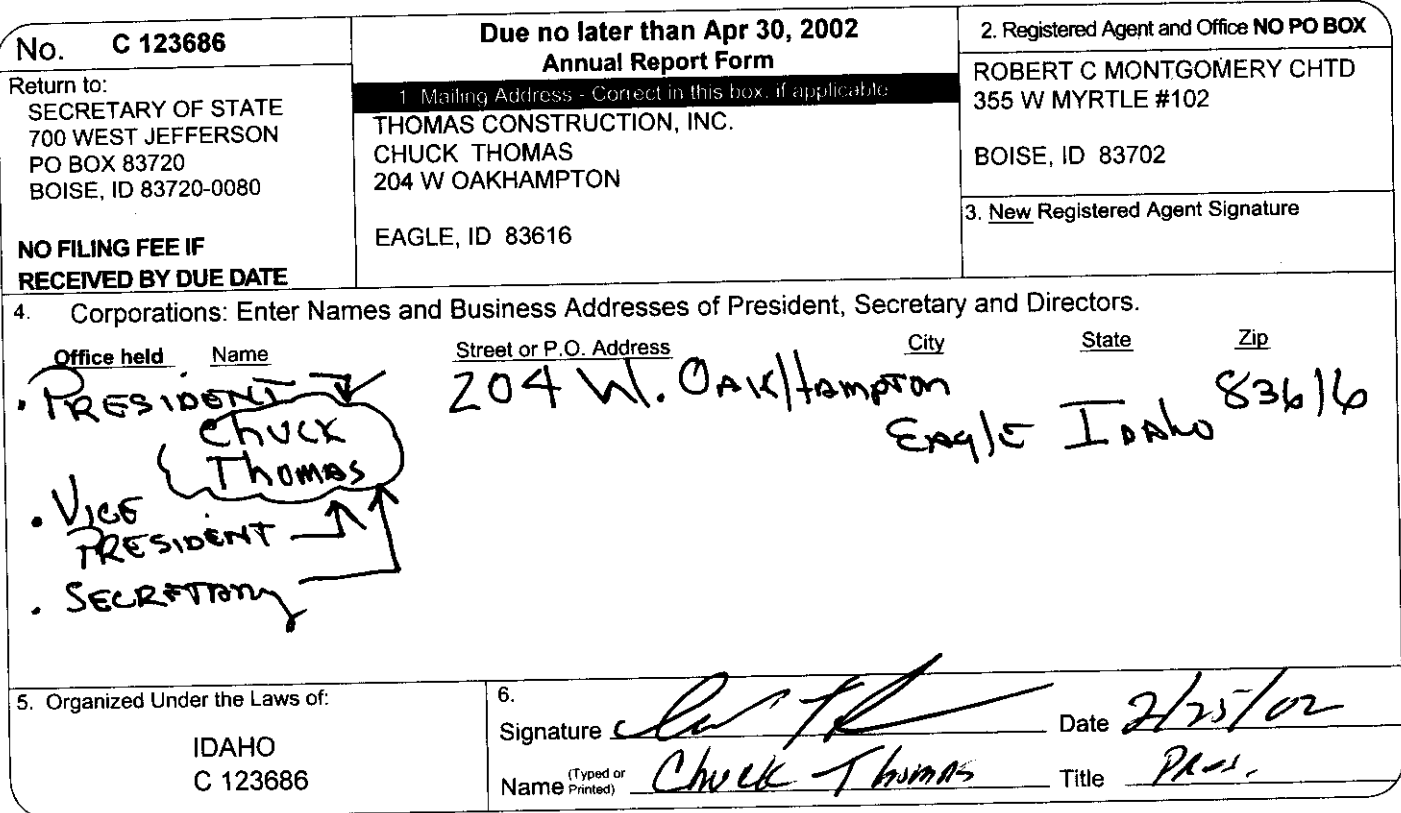 No. C 123686
Return to:
SECRETARY OF STATE
700 WEST JEFFERSON
PO BOX 83720
BOISE, ID 83720-0080
NO FILING FEE IF
RECEIVED BY DUE DATE
Due no later than Apr 30, 2002
Annual Report Form
1 Mailing Address - Correct in this box, if applicable
THOMAS CONSTRUCTION, INC.
CHUCK THOMAS
204 W OAKHAMPTON
EAGLE, ID 83616
2. Registered Agent and Office NO PO BOX
ROBERT C MONTGOMERY CHTD
355 W MYRTLE #102
BOISE, ID 83702
3. New Registered Agent Signature
4. Corporations: Enter Names and Business Addresses of President, Secretary and Directors.
Office held Name Street or P.O. Address City State Zip
. PRESIDENT 204 W. OAKHAMPTON
Chuck Eagle IDAHO 83616
Thomas
. VICE
PRESIDENT
. SECRETARY
5. Organized Under the Laws of:
IDAHO
C 123686
6.
Signature Date 2/25/02
Name (Typed or Printed) Chuck Thomas Title Pres.